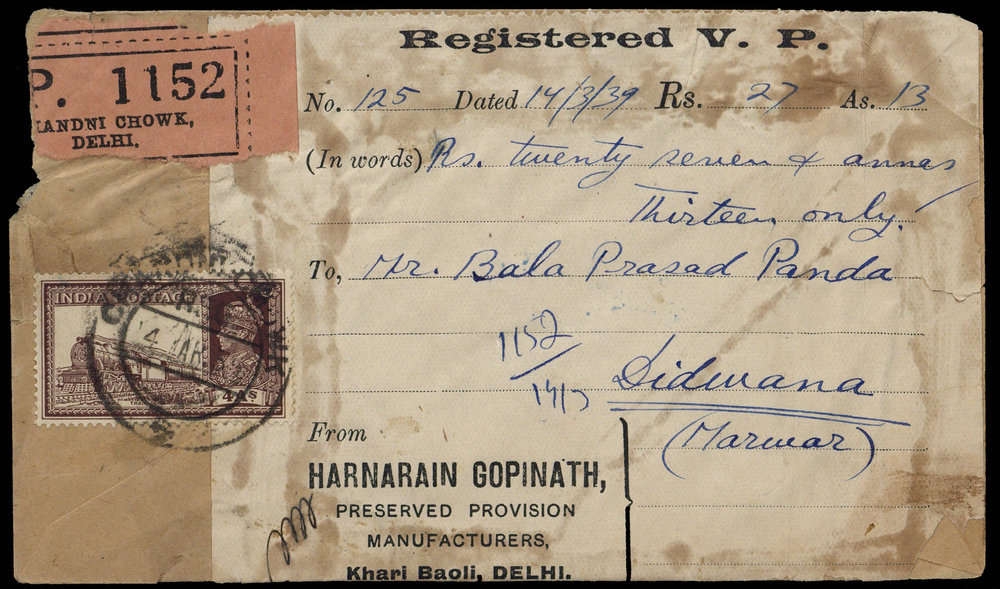 Registered V. P.
P. 1152
ANDNI CHOWK,
DELHI.
No. 125 Dated 14/3/39 Rs. 27 As. 13
(In words) Rs. twenty seven & annas
Thirteen only.
To, Mr. Bala Prasad Panda
INDIA POSTAGE
4 MAR
4 As
1152
14/3
Didwana
(Marwar)
From
HARNARAIN GOPINATH,
PRESERVED PROVISION
MANUFACTURERS,
Khari Baoli, DELHI.